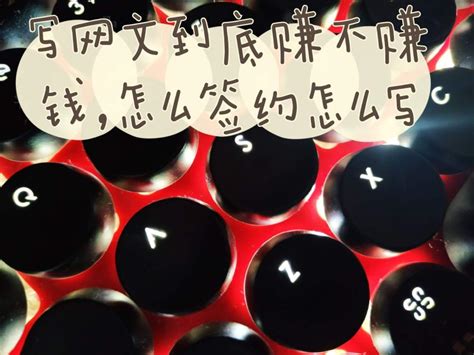 写网文到底赚不赚
钱,怎么签约怎么写
S
Q
X
A
Z